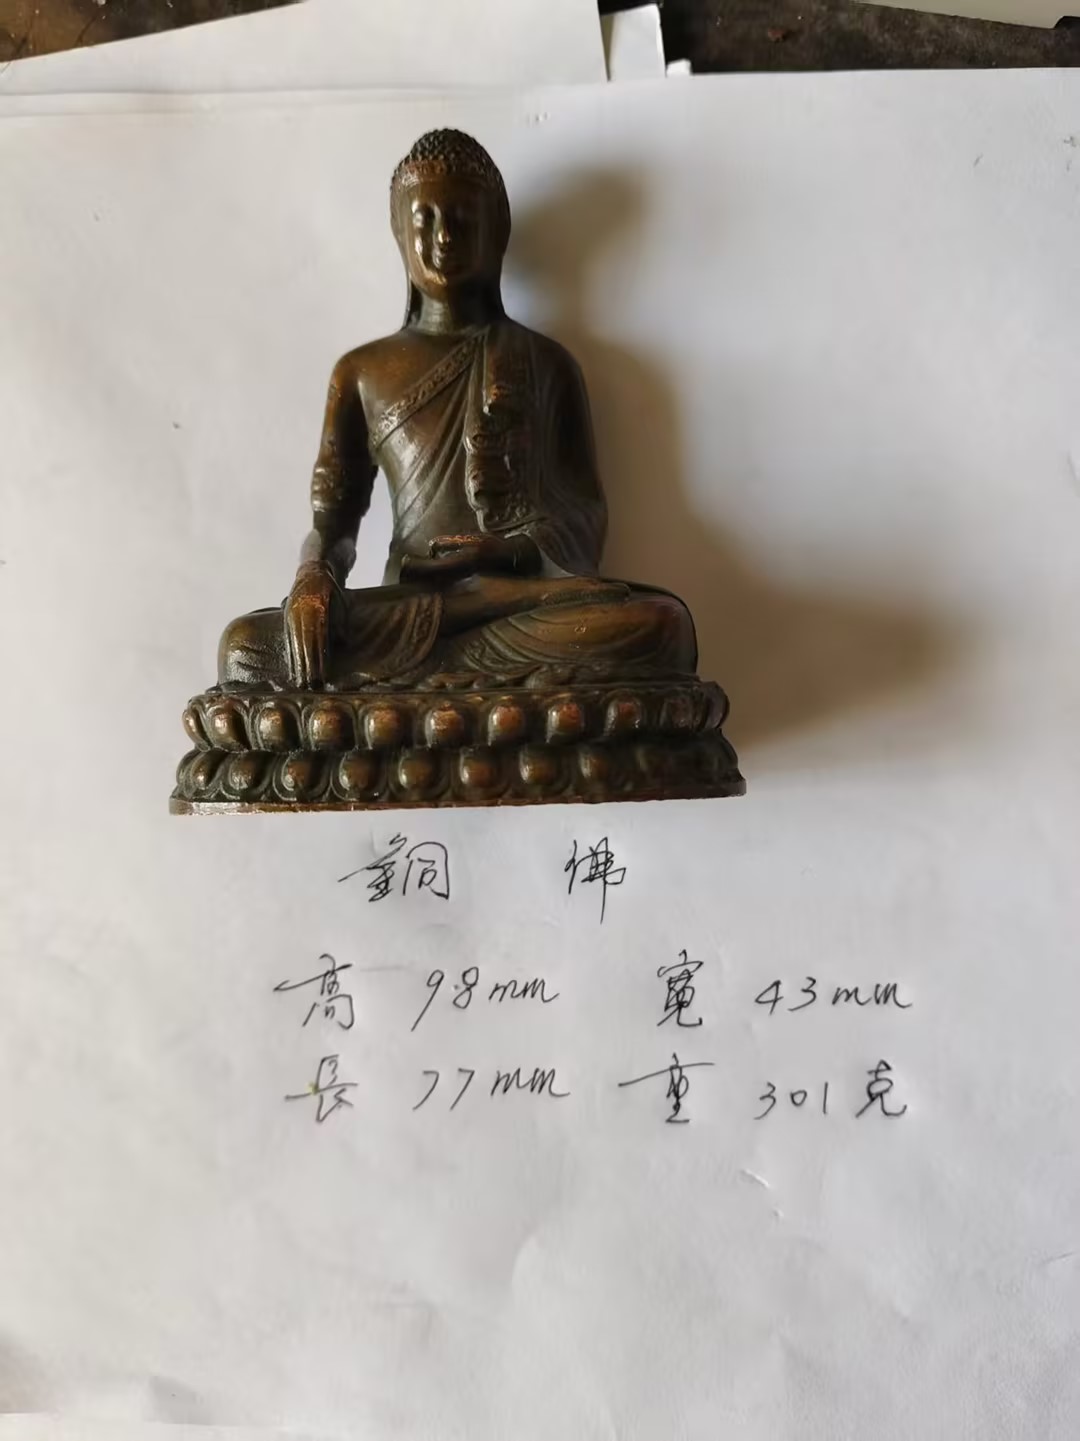 銅 佛
高 98mm 寬 43mm
長 77mm 重 301克